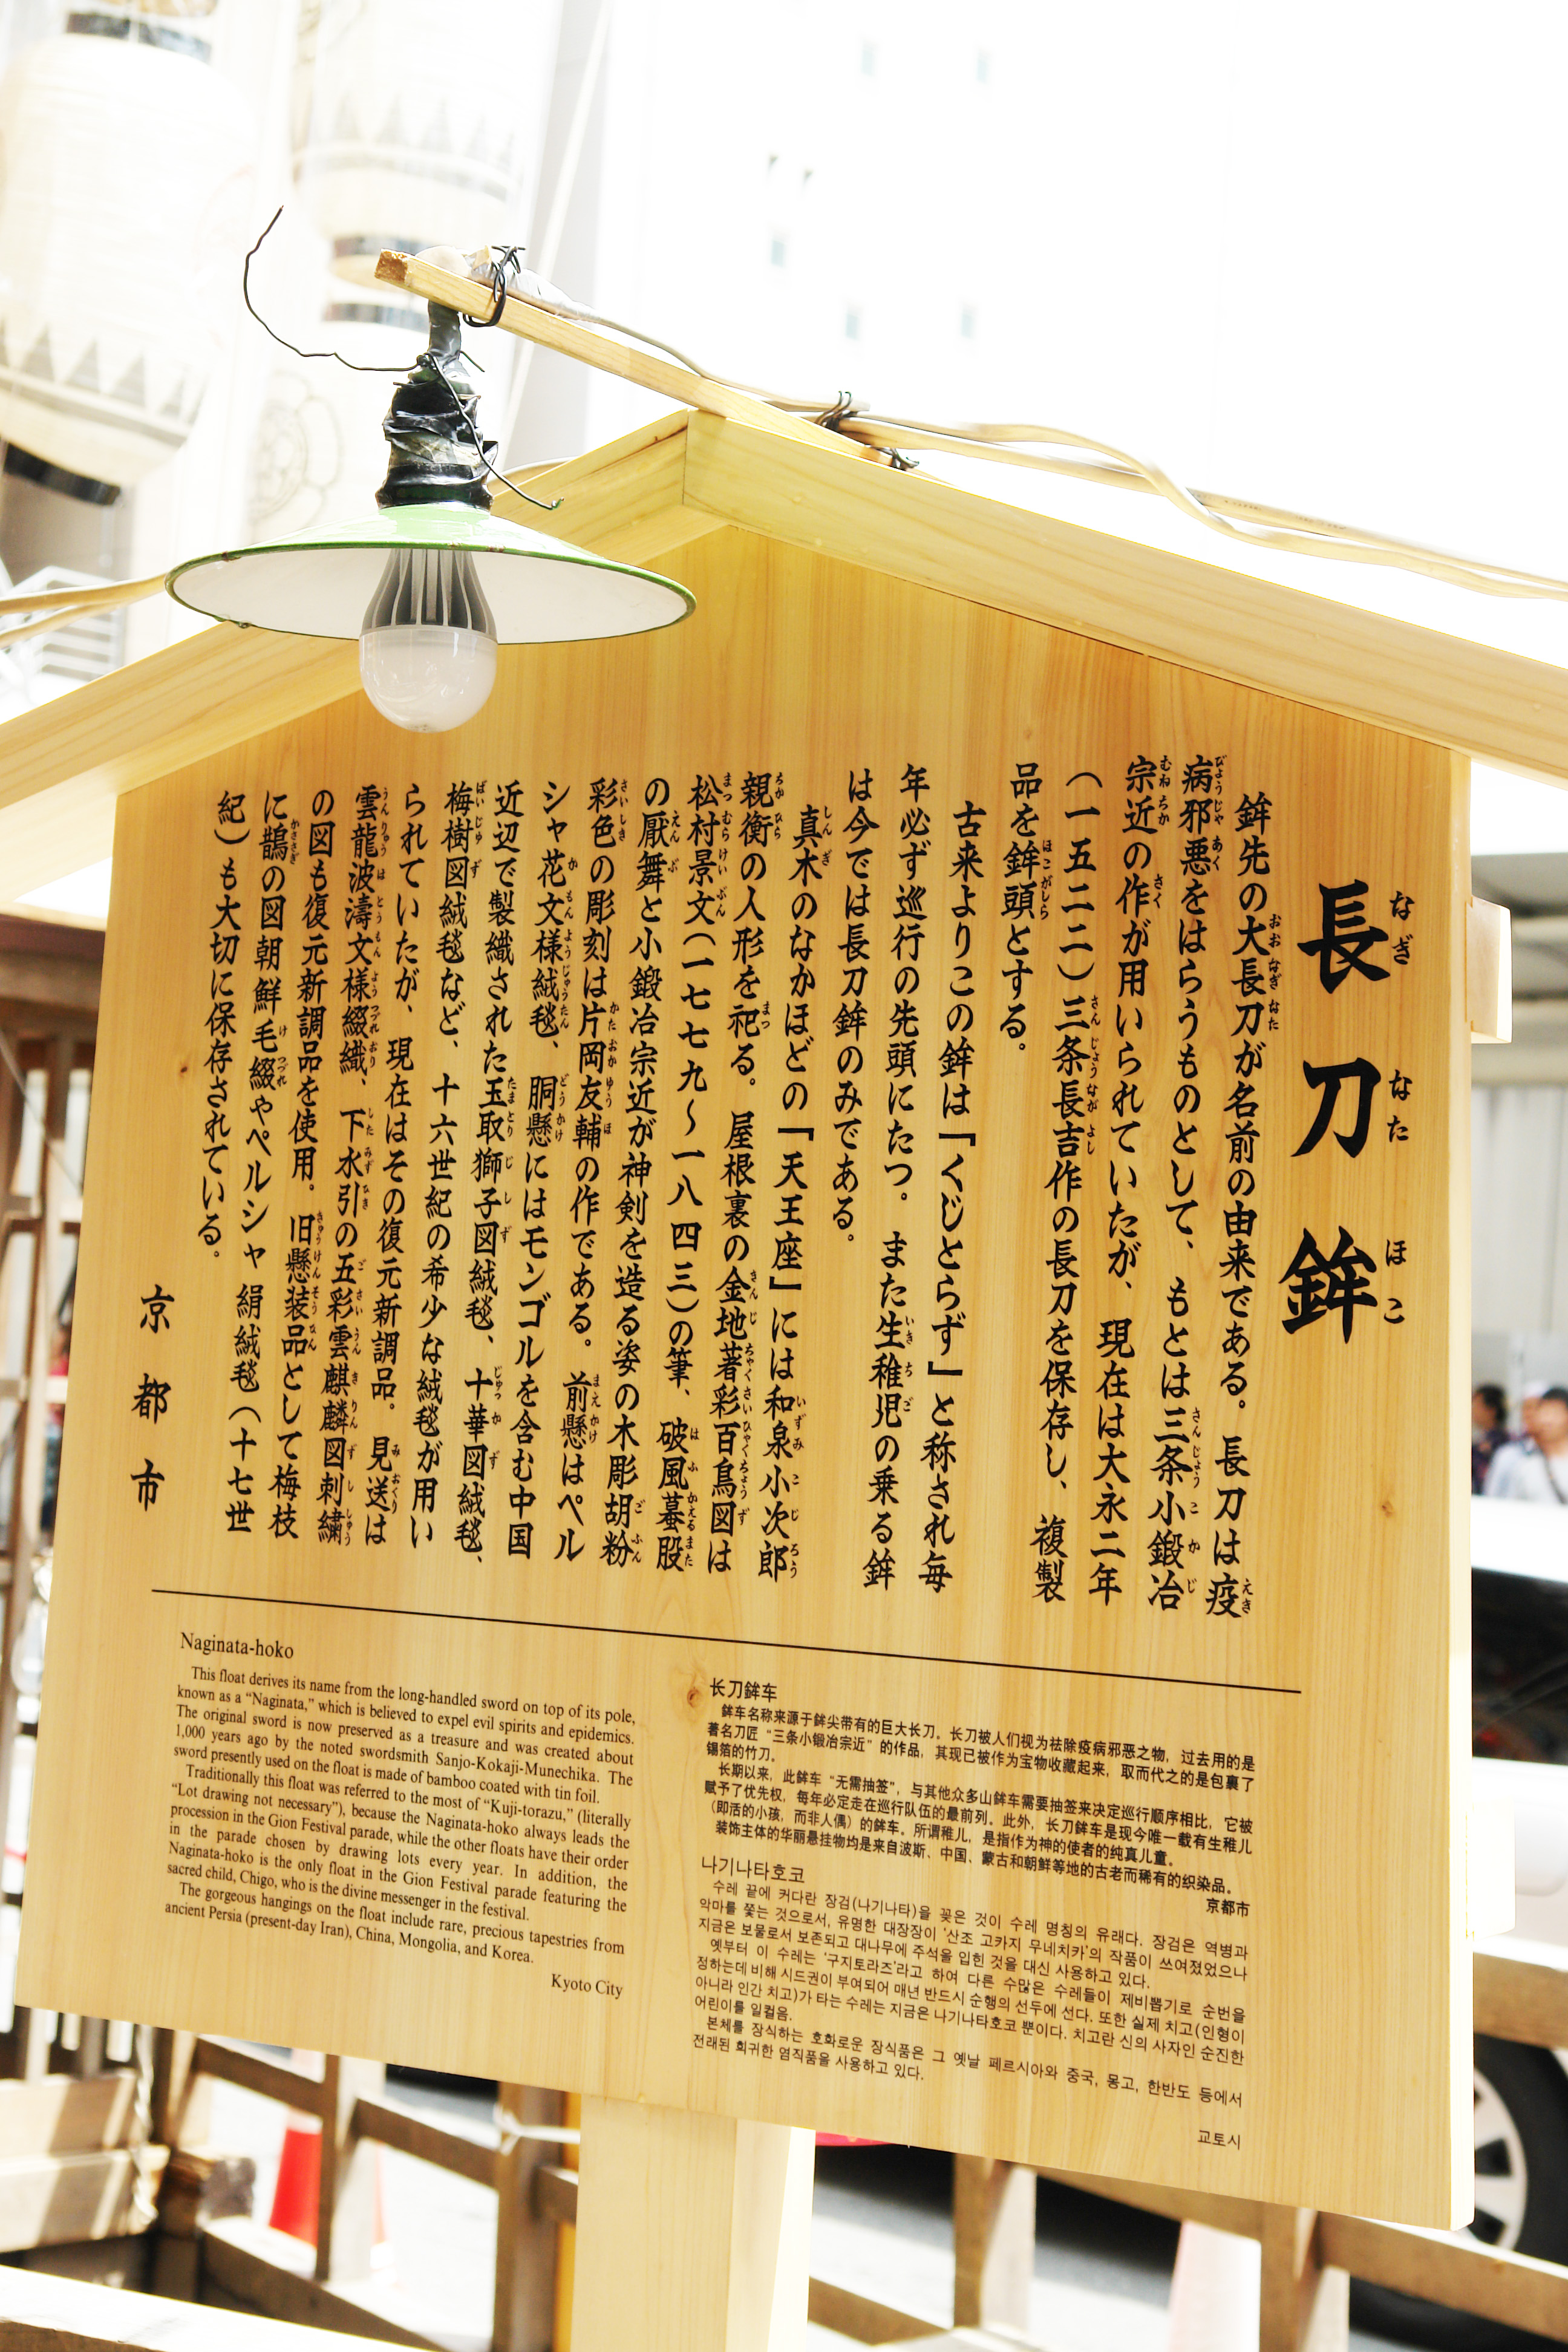 長刀鉾
なぎなたほこ
鉾先の大長刀が名前の由来である。長刀は疫
病邪悪をはらうものとして、もとは三条小鍛冶
宗近の作が用いられていたが、現在は大永二年
(一五二二)三条長吉作の長刀を保存し、複製
品を鉾頭とする。
古来よりこの鉾は「くじとらず」と称され毎
年必ず巡行の先頭にたつ。また生稚児の乗る鉾
は今では長刀鉾のみである。
真木のなかほどの「天王座」には和泉小次郎
親衡の人形を祀る。屋根裏の金地著彩百鳥図は
松村景文(一七七九〜一八四三)の筆、破風蟇股
の厭舞と小鍛冶宗近が神剣を造る姿の木彫胡粉
彩色の彫刻は片岡友輔の作である。前懸はペル
シャ花文様絨毯、胴懸にはモンゴルを含む中国
近辺で製織された玉取獅子図絨毯、十華図絨毯、
梅樹図絨毯など、十六世紀の希少な絨毯が用い
られていたが、現在はその復元新調品。見送は
雲龍波濤文様綴織、下水引の五彩雲麒麟図刺繍
の図も復元新調品を使用。旧懸装品として梅枝
に鵲の図朝鮮毛綴やペルシャ絹絨毯(十七世
紀)も大切に保存されている。
京都市
Naginata-hoko
This float derives its name from the long-handled sword on top of its pole,
known as a “Naginata,” which is believed to expel evil spirits and epidemics.
The original sword is now preserved as a treasure and was created about
1,000 years ago by the noted swordsmith Sanjo-Kokaji-Munechika. The
sword presently used on the float is made of bamboo coated with tin foil.
Traditionally this float was referred to the most of “Kuji-torazu,” (literally
“Lot drawing not necessary”), because the Naginata-hoko always leads the
procession in the Gion Festival parade, while the other floats have their order
in the parade chosen by drawing lots every year. In addition, the
Naginata-hoko is the only float in the Gion Festival parade featuring the
sacred child, Chigo, who is the divine messenger in the festival.
The gorgeous hangings on the float include rare, precious tapestries from
ancient Persia (present-day Iran), China, Mongolia, and Korea.
Kyoto City
长刀鉾车
鉾车名称来源于鉾尖带有的巨大长刀。长刀被人们视为祛除疫病邪恶之物，过去用的是
著名刀匠“三条小锻冶宗近”的作品，其现已被作为宝物收藏起来，取而代之的是包裹了
锡箔的竹刀。
长期以来，此鉾车“无需抽签”，与其他众多山鉾车需要抽签来决定巡行顺序相比，它被
赋予了优先权，每年必定走在巡行队伍的最前列。此外，长刀鉾车是现今唯一载有生稚儿
(即活的小孩，而非人偶）的鉾车。所谓稚儿，是指作为神的使者的纯真儿童。
装饰主体的华丽悬挂物均是来自波斯、中国、蒙古和朝鲜等地的古老而稀有的织染品。
京都市
나기나타호코
수레 끝에 커다란 장검(나기나타)을 꽂은 것이 수레 명칭의 유래다. 장검은 역병과
악마를 쫓는 것으로서, 유명한 대장장이 ‘산조 고카지 무네치카’의 작품이 쓰여졌었으나
지금은 보물로서 보존되고 대나무에 주석을 입힌 것을 대신 사용하고 있다.
옛부터 이 수레는 ‘구지토라즈’라고 하여 다른 수많은 수레들이 제비뽑기로 순번을
정하는데 비해 시드권이 부여되어 매년 반드시 순행의 선두에 선다. 또한 실제 치고(인형이
아니라 인간 치고)가 타는 수레는 지금은 나기나타호코 뿐이다. 치고란 신의 사자인 순진한
어린이를 일컬음.
본체를 장식하는 호화로운 장식품은 그 옛날 페르시아와 중국, 몽고, 한반도 등에서
전래된 희귀한 염직품을 사용하고 있다.
교토시